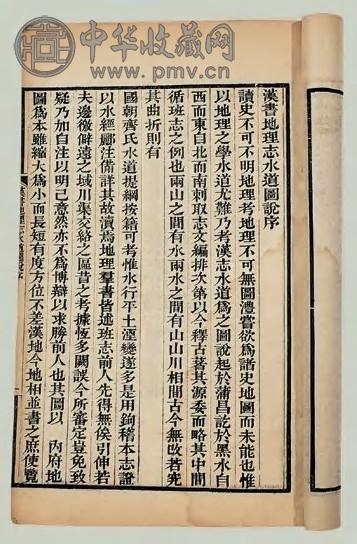 中华收藏网
www.pmv.cn
漢書地理志水道圖說序
讀史不可不明地理考地理不可無圖澧嘗欲爲諸史地圖而未能也惟
以地理之學水道尤難乃考漢志水道爲之圖說起於蒲昌訖於黑水自
西而東自北而南刺取志文編排次第以今釋古著其源委而略其中閒
循班志之例也兩山之閒有水兩水之閒有山山川相閒古今無改若究
其曲折則有
國朝齊氏水道提綱按籍可考惟水行平土湮變遂多是用鉤稽本志證
以水經酈注備詳其故瀆焉地理羣書皆述班志前人先得無俟引伸若
夫邊徼僻遠之域川渠交絡之區昔之考據恆多闕誤今所審定豈免致
疑乃加自注以明己意然亦不爲博辯以求勝前人也其圖以 內府地
圖爲本雖縮大爲小而長短有度方位不差漢地今地相並書之庶便覽